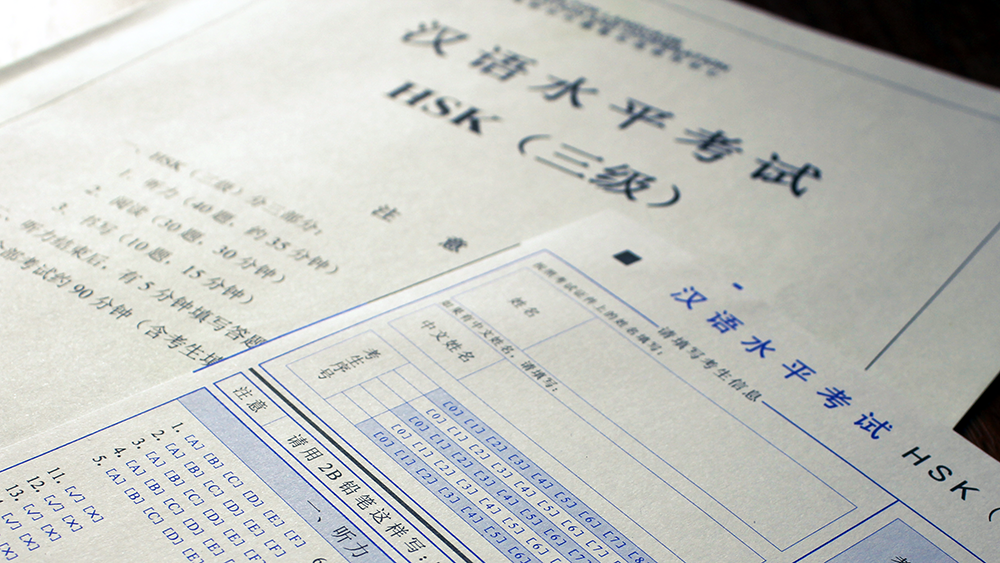 汉语水平考试
HSK（三级）
注 意
一、HSK（三级）分三部分：
1. 听力（40题，约35分钟）
2. 阅读（30题，30分钟）
3. 书写（10题，15分钟）
听力结束后，有5分钟填写答题
全部考试约90分钟（含考生填
汉语水平考试 HSK（
请填写考生信息
按照考试证件上的姓名填写：
姓名
如果有中文姓名，请填写：
中文姓名
考生序号
[0] [1] [2] [3] [4] [5] [6] [7] [8]
[0] [1] [2] [3] [4] [5] [6] [7]
[0] [1] [2] [3] [4] [5] [6] [7]
[0] [1] [2] [3] [4] [5] [6]
[0] [1] [2] [3] [4] [5] [6]
注意
请用2B铅笔这样写：
一、听力
1. [A] [B] [C] [D] [E] [F]
2. [A] [B] [C] [D] [E] [F]
3. [A] [B] [C] [D] [E] [F]
4. [A] [B] [C] [D] [E] [F]
5. [A] [B] [C] [D] [E]
6
11. [√] [×]
12. [√] [×]
13. [√] [×]
[√] [×]
[×]